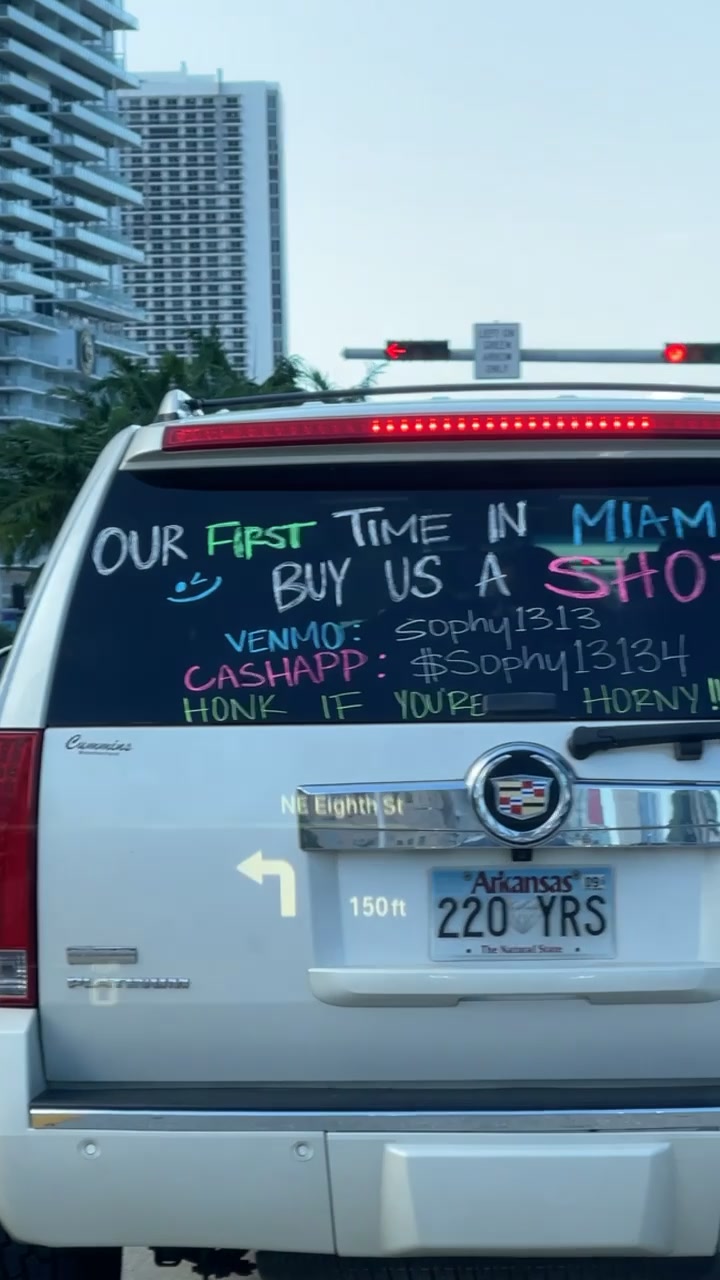 LEFT ON
GREEN
ARROW
ONLY
OUR FIRST TIME IN MIAM
BUY US A SHOT
VENMO: Sophy1313
CASHAPP: $Sophy13134
HONK IF YOU'RE HORNY!!
Cummins
NE Eighth St
150 ft
Arkansas 09
220 YRS
The Natural State
PLATINUM